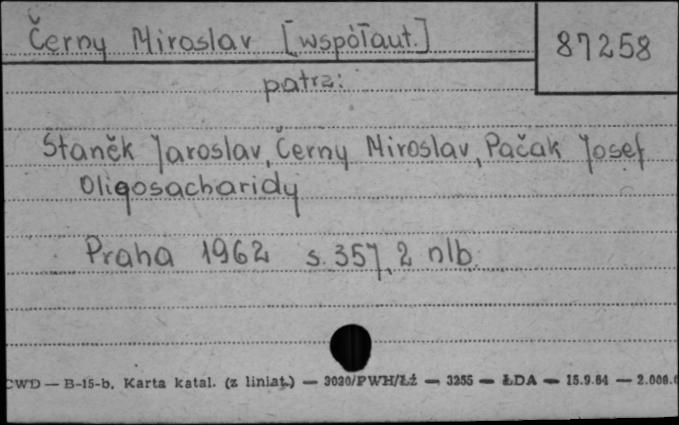 Černy Miroslav [współaut.]
87258
patrz:
Staněk Jaroslav, Černy Miroslav, Pačak Josef
Oligosacharidy
Praha 1962 s. 357, 2 nlb.
CWD — B-15-b. Karta katal. (z liniat.) — 3020/PWH/Łź — 3255 — ŁDA — 15.9.64 — 2.000.0